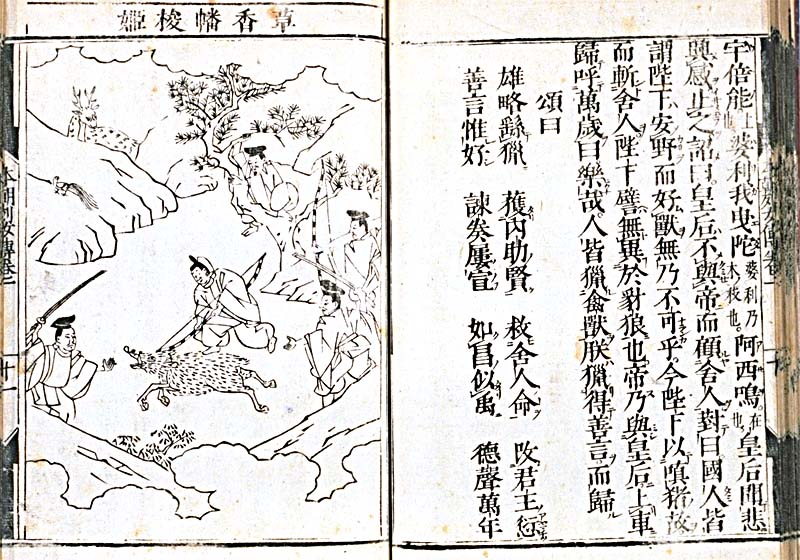 宇倍能 婆利我曳陀 婆利乃木枝也。 阿西嗚 在也。 皇后聞悲
興感止之詔曰皇后不與帝而顧舍人對曰國人皆
謂陛下安野而好獸無乃不可乎今陛下以嗔猪故
而斬舍人陛下譬無異於豺狼也帝乃與皇后上車
歸呼萬歲曰樂哉人皆獵禽獸朕獵得善言而歸
頌曰
雄略獵 獲内助賢 救舍人命 改君王愆
善言惟好 諫矣屢宣 如昌似禹 德聲萬年
草香幡梭姫
本朝列女傳卷一
十一